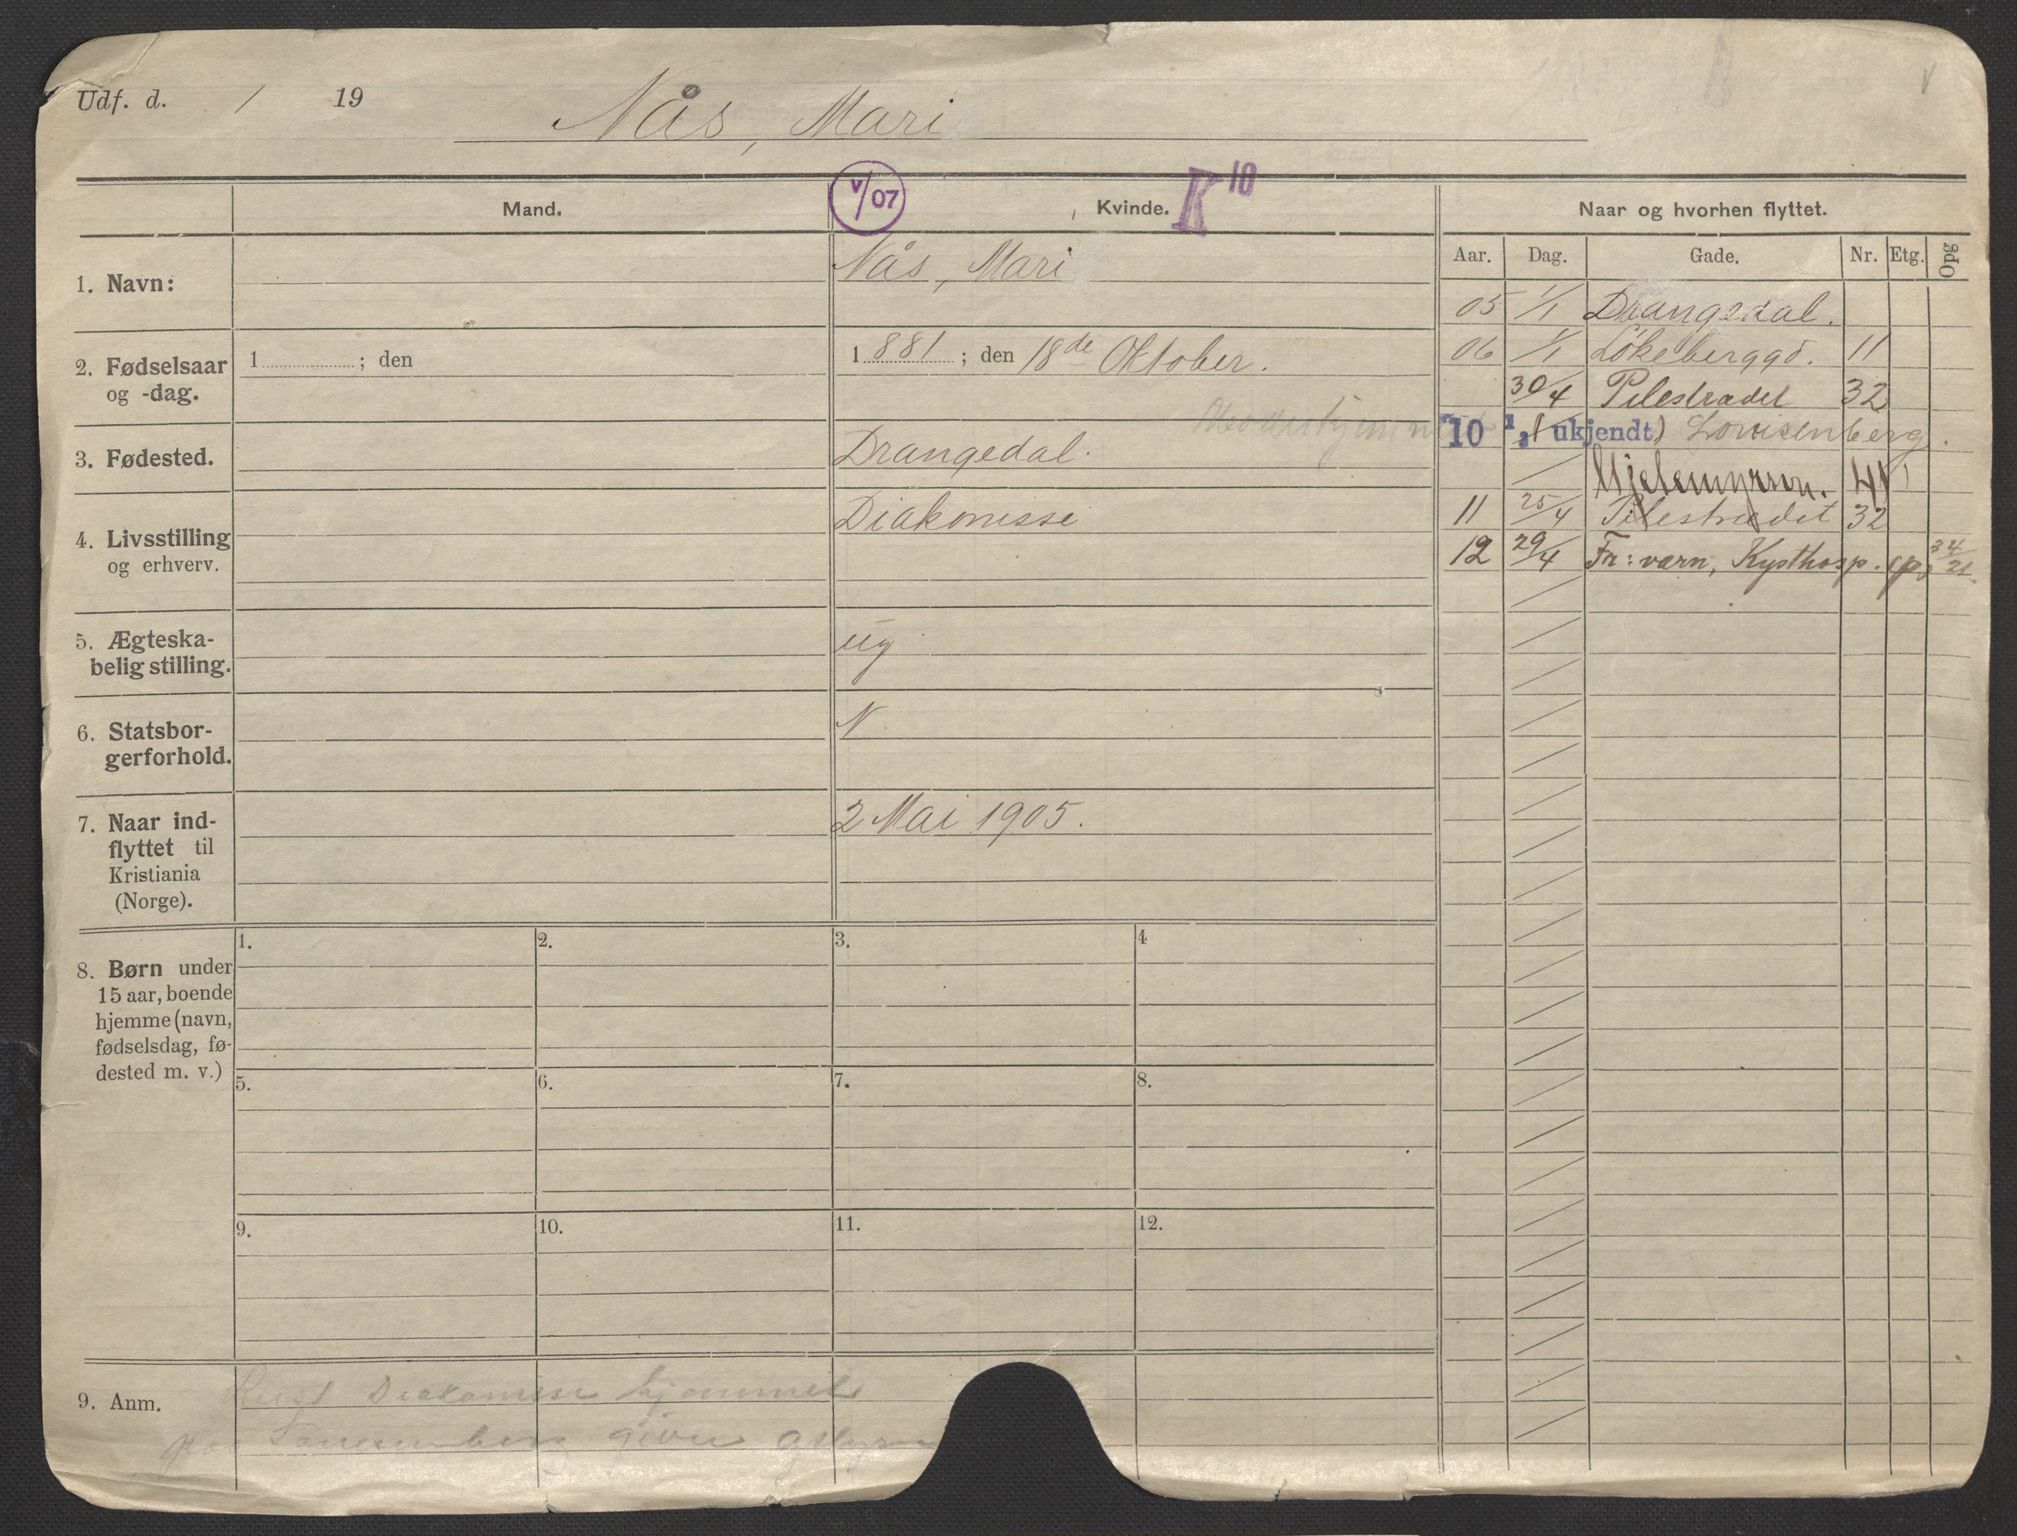 Udf. d. / 19
Nås, Mari
Mand.
v/07
Kvinde.
K 10
Naar og hvorhen flyttet.
Aar. Dag. Gade. Nr. Etg. Opg
1. Navn:
Nås, Mari
05 1/1 Drangedal.
06 1/1 Lökeberggd. 11
2. Fødselsaar og -dag.
1 ; den
1881 ; den 18de Oktober.
30/4 Pilestrædet 32
10 1/2 (ukjendt) Lovisenberg.
3. Fødested.
Drangedal.
41
4. Livsstilling og erhverv.
Diakonesse
11 25/4 Pilestrædet 32
12 29/4 Fr: værn, Kysthosp. 34/21.
5. Ægteska-
belig stilling.
ug
6. Statsbor-
gerforhold.
N.
7. Naar ind-
flyttet til
Kristiania
(Norge).
2 Mai 1905.
8. Børn under
15 aar, boende
hjemme (navn,
fødselsdag, fø-
dested m. v.)
1. 2. 3. 4
5. 6. 7. 8.
9. 10. 11. 12.
9. Anm.
Diakonisse hjemmet